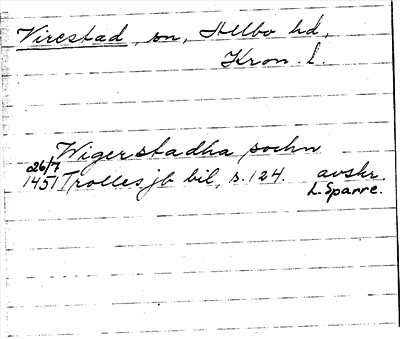 Virestad, sn, Allbo hd,
Kron. l.
Wigerstadha sochn
26/7
1451 Trolles jb bil, s. 124. avskr.
L. Sparre.